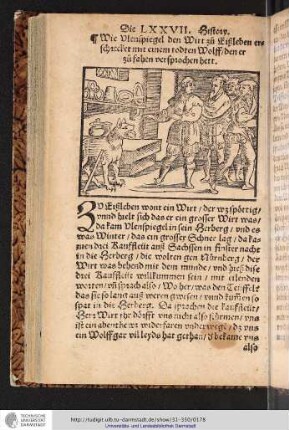 Die LXXVII. History.
¶ Wie Vlenspiegel den Wirt zů Eißleben er
schrecket mit einem todten Wolff/ den er
zů fahen versprochen hett.
ZV Eißleben wont ein Wirt / der wz spöttig/
vnnd hielt sich das er ein grosser Wirt was/
da kam Vlenspiegel in sein Herberg / vnd es
was Winter / das ein grosser Schnee lag / da ka-
men drei Kauffleüt auß Sachssen in finster nacht
in die Herberg / die wolten gen Nürnberg / der
Wirt was behend mit dem munde / vnd hieß die
drei Kauffleüt willkummen sein / mit eilenden
worten / vñ sprach also / Wo her / was den Teüffel/
das sie so lang auß weren gewesen / vnnd kummen so
spat in die Herberg. Da sprachen die Kauffleüt/
Herr Wirt ihr dörfft vns nicht also schemen / vns
ist ein abentheür widerfaren vnderwegs / dz vns
ein Wolff gar vil leyds hat gethan / d' bekame vns
also
TECHNISCHE
UNIVERSITÄT
DARMSTADT
http://tudigit.ulb.tu-darmstadt.de/show/31-350/0178
Universitäts- und Landesbibliothek Darmstadt